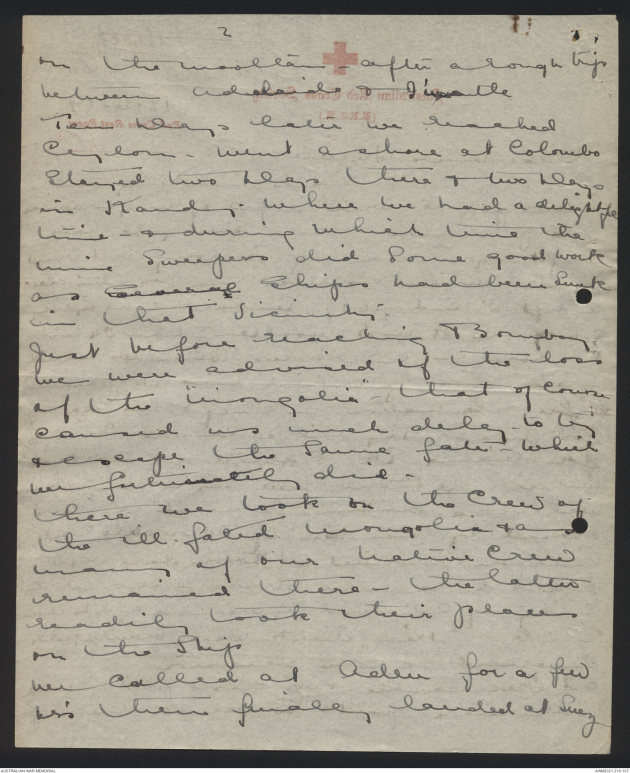 2
on the mooltan - after a rough trip
between Adelaide & F'mantle
Ten days later we reached
Ceylon - went ashore at Colombo
stayed two days there & two days
in Kandy - where we had a delightful
time - & during which time the
mine sweepers did some good work
as several ships had been sunk
in that vicinity.
Just before reaching Bombay
we were advised of the loss
of the "mongolia" - that of course
caused us much delay - to try
& escape the same fate - which
we fortunately did -
there we took on the crew of
the ill fated mongolia & as
many of our native crew
remained there - the latter
readily took their places
on the ship
we called at Aden for a few
hrs then finally landed at Suez
AUSTRALIAN WAR MEMORIAL